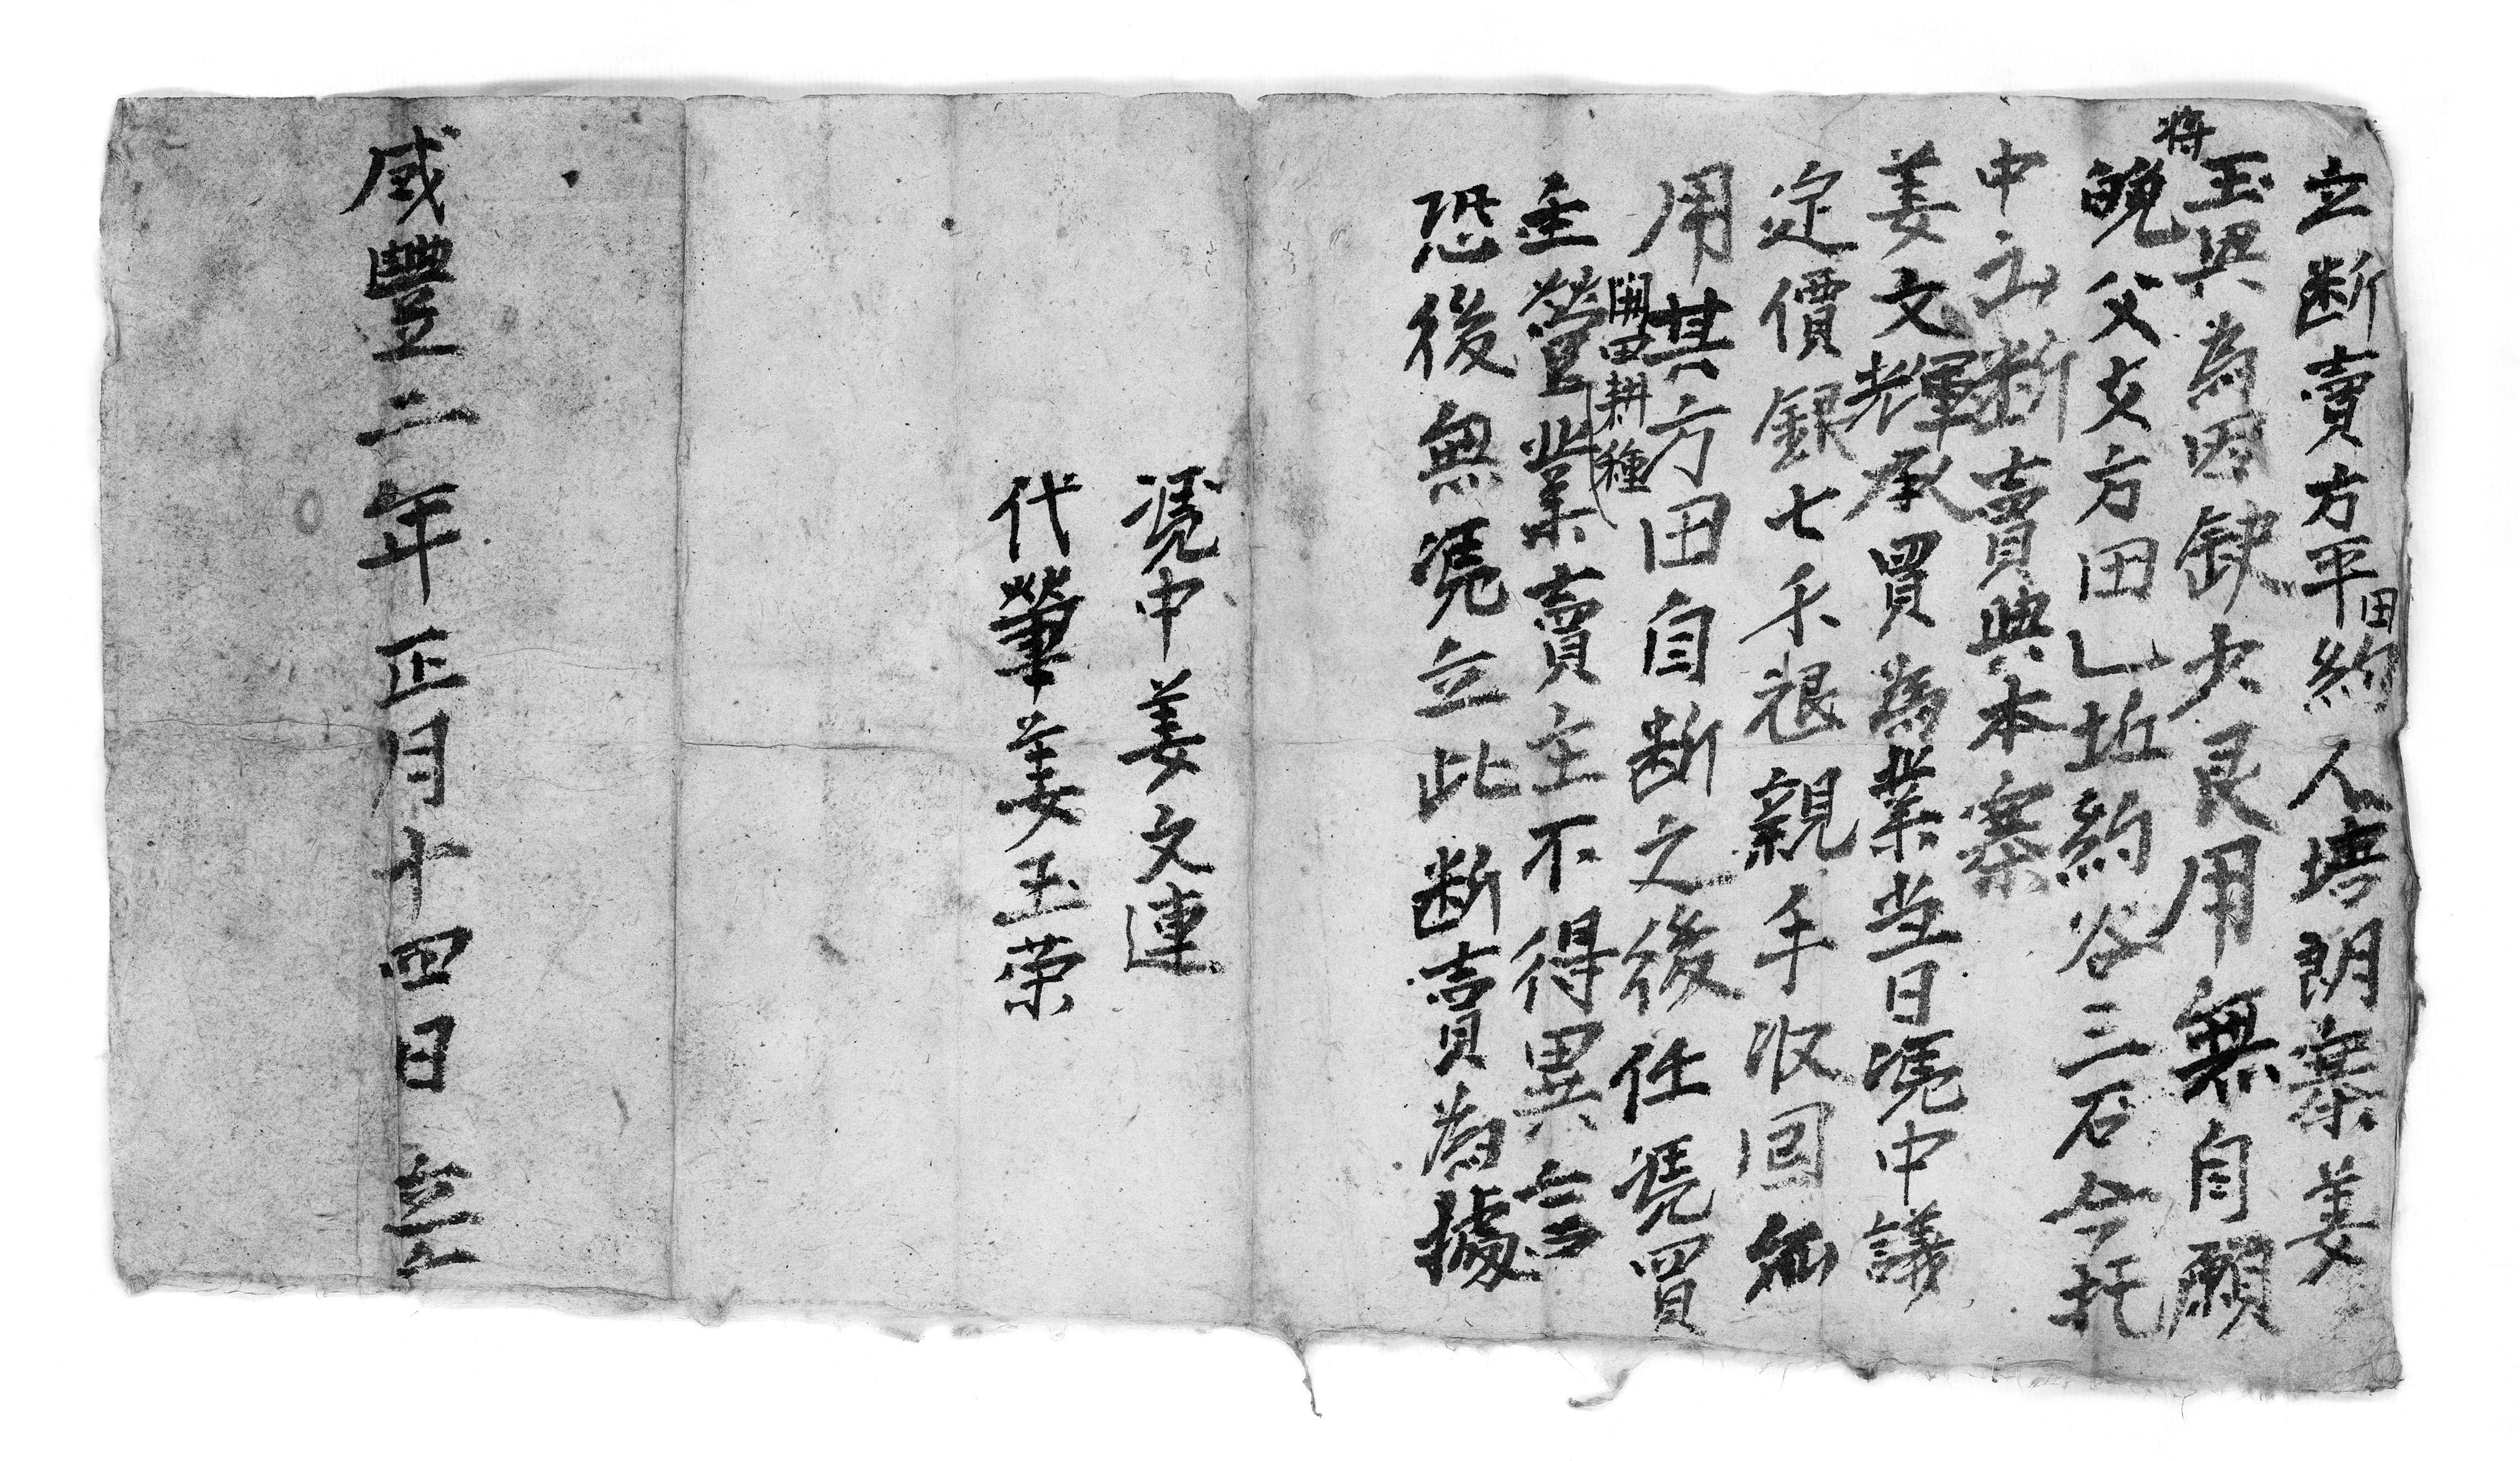 立断賣方平田約人塘朗寨姜
玉興為因缺少艮用無自願
將晚父女方田乚坵約谷三石今托
中立断賣與本寨
姜文輝承買為業当日凴中議
定價銀七千退親手收回
用其方田自断之後任凴買
主營業賣主不得異言
開田耕種
恐後無凴立此断賣為據
凴中姜文連
代筆姜玉荣
咸豐二年正月十四日立